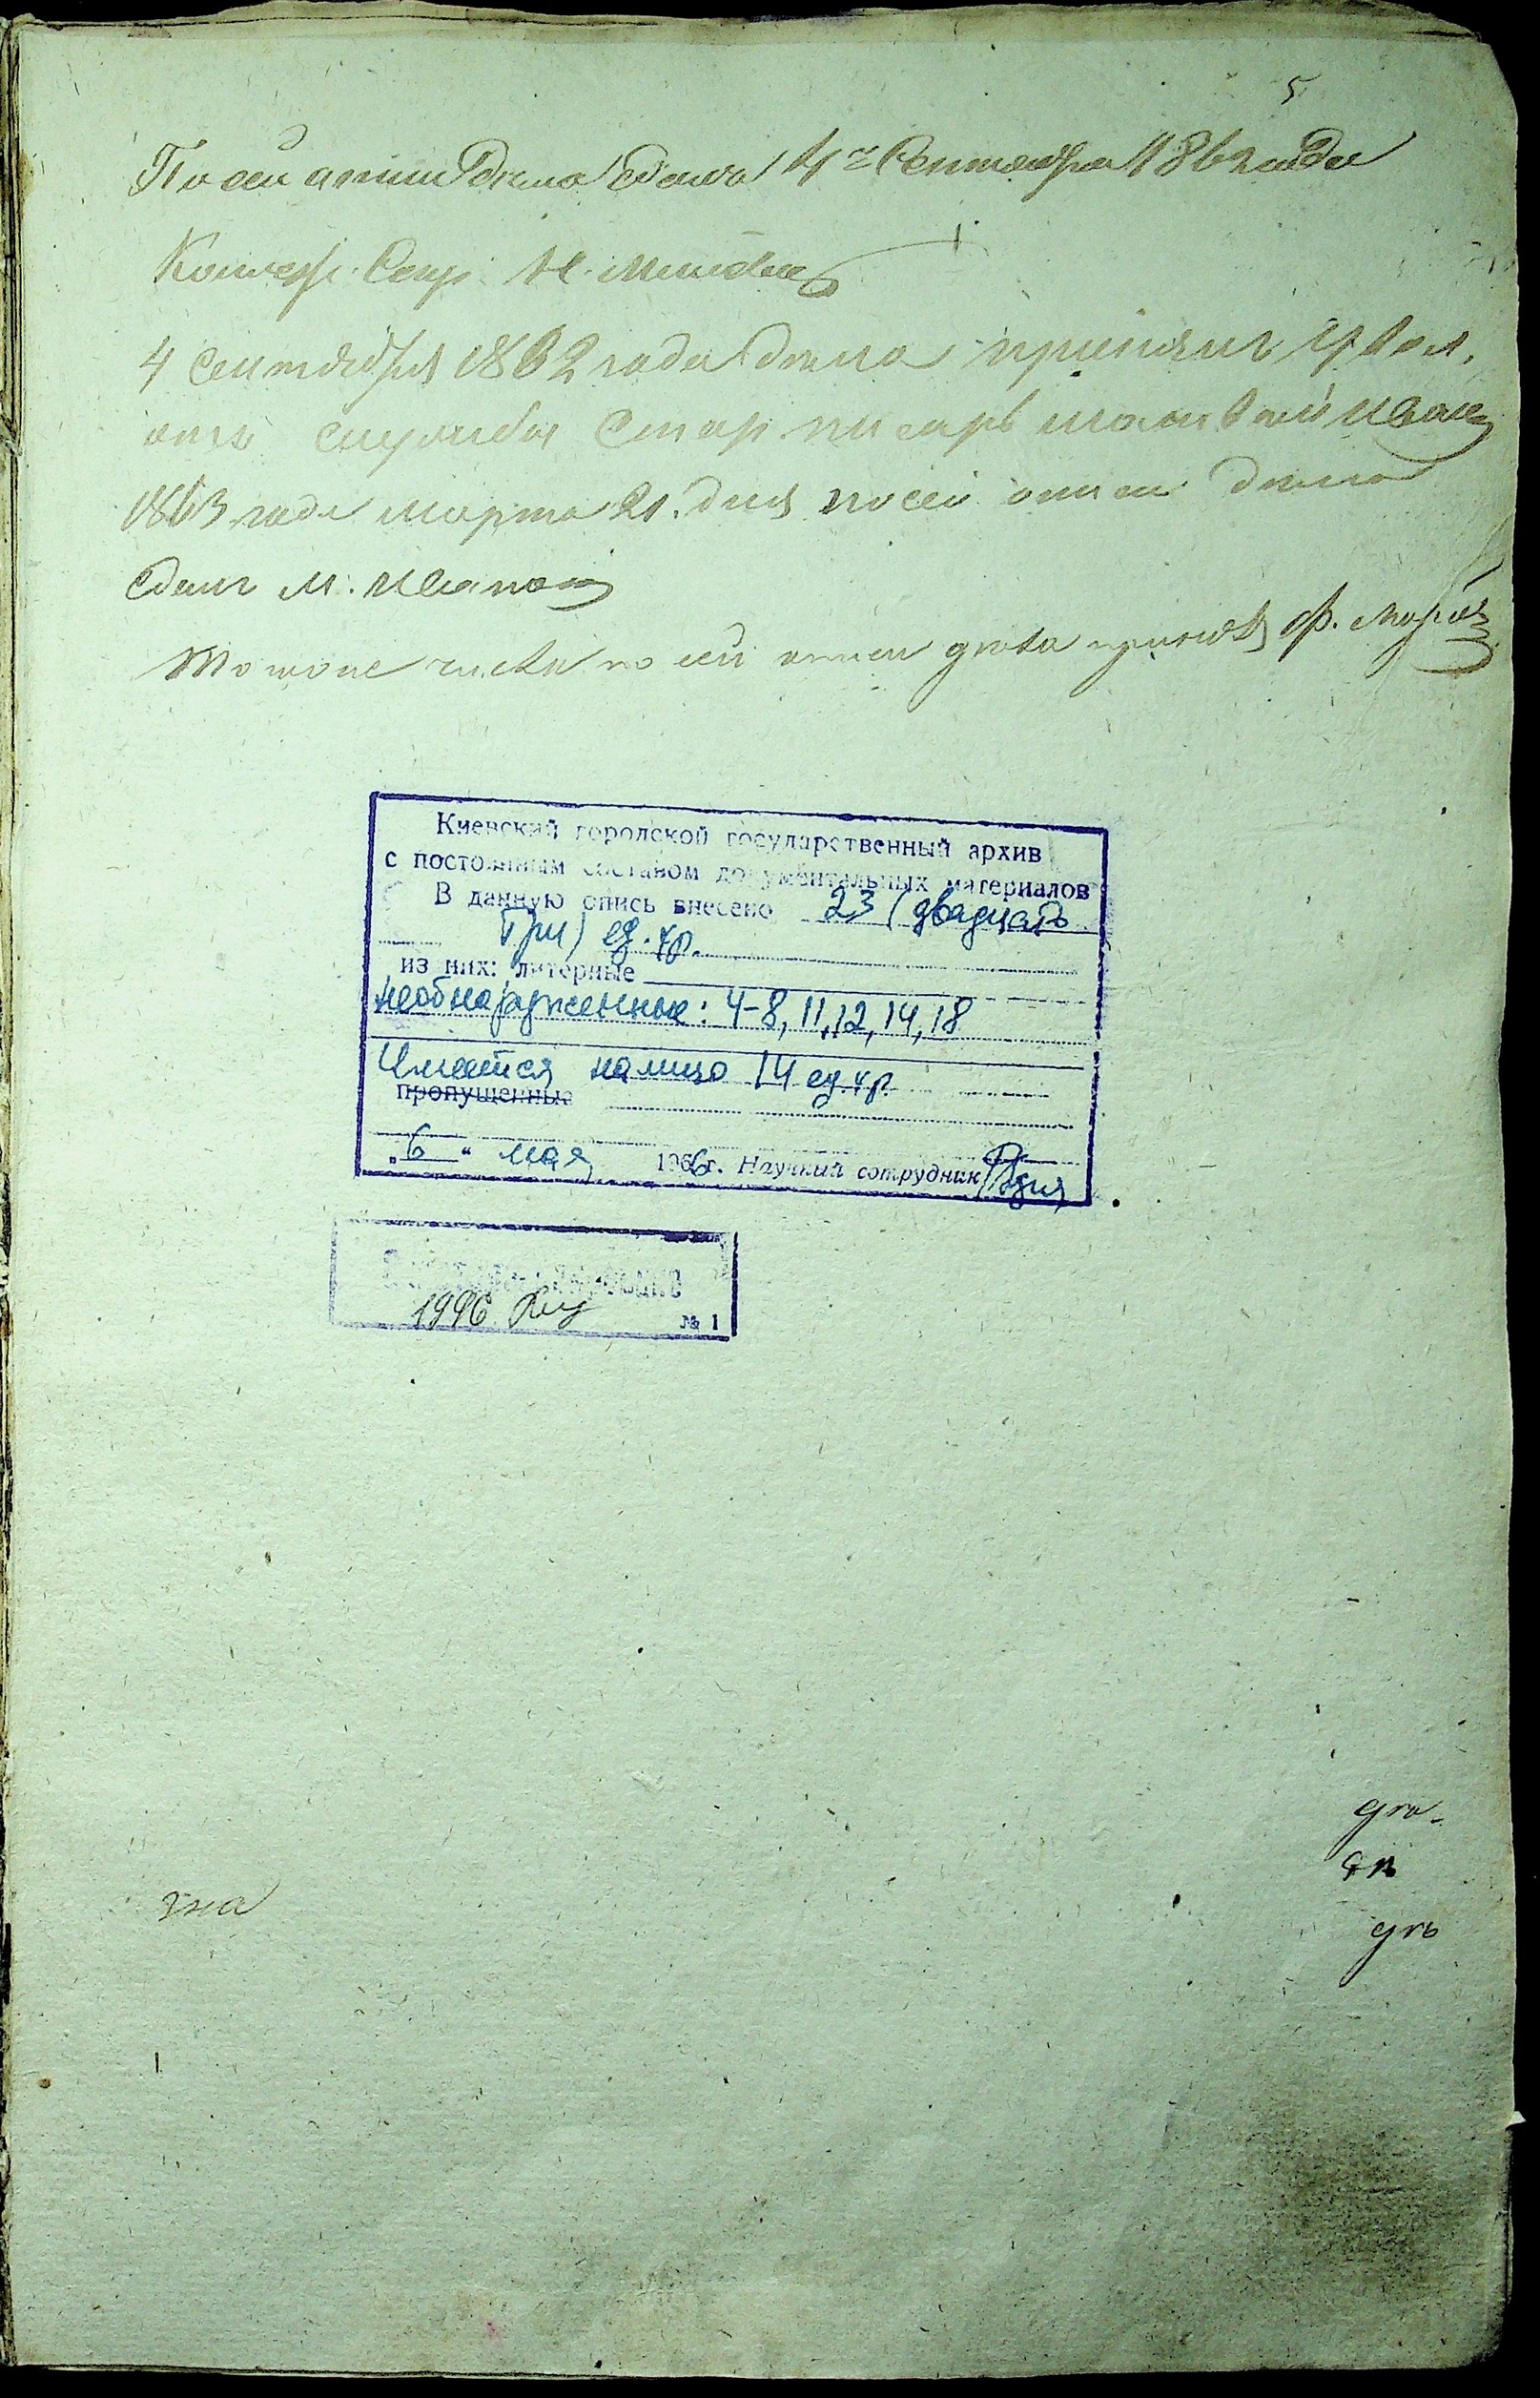 5
По сей описи дѣла сдалъ 4го Сентября 1862 года
Коллеж. Секр. Н.
4 сентября 1862 года дѣла принялъ увол.
отъ службы Стар. писарь Иван
1863 года марта 21. дня по сей описи дѣла
сдалъ М. Иванов
Того же числа по сей описи дѣла принялъ Ф. Мороз
Киевский городской государственный архив
с постоянным составом документальных материалов
В данную опись внесено 23 (двадцать
три) ед. хр.
из них: литерные
необнаруженные: 4-8, 11, 12, 14, 18
Имеется налицо 14 ед. хр.
пропущенные
„6“ мая 1966 г. Научный сотрудник
1996
№ 1
зна